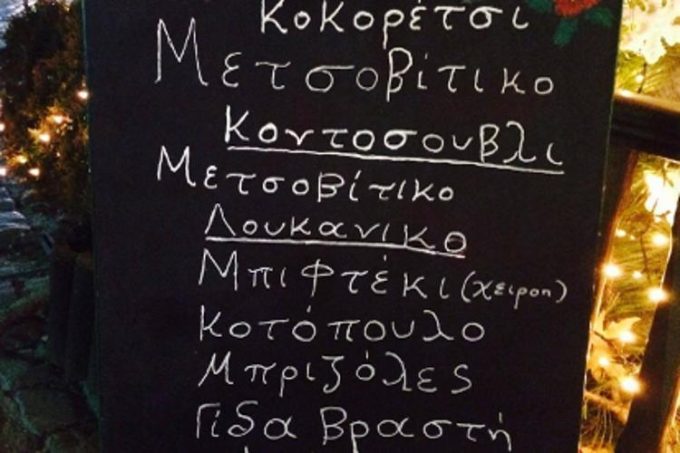 Κοκορέτσι
Μετσοβίτικο
Κοντοσουβλι
Μετσοβίτικο
Λουκανικο
Μπιφτέκι (χειροπ)
Κοτόπουλο
Μπριζόλες
Γίδα Βραστή